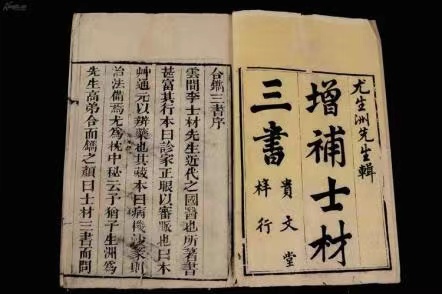 尤生洲先生輯
增補士材
三書
貴文堂
梓行
合鐫三書序
雲間李士材先生近代之國醫也所著書
甚富其行本曰診家正眼以審脈也曰本
艸通元以辨藥也其本曰病機沙篆則
治法備焉尤為枕中秘云予猶子生洲為
先生高弟合而鐫之顏曰士材三書而問